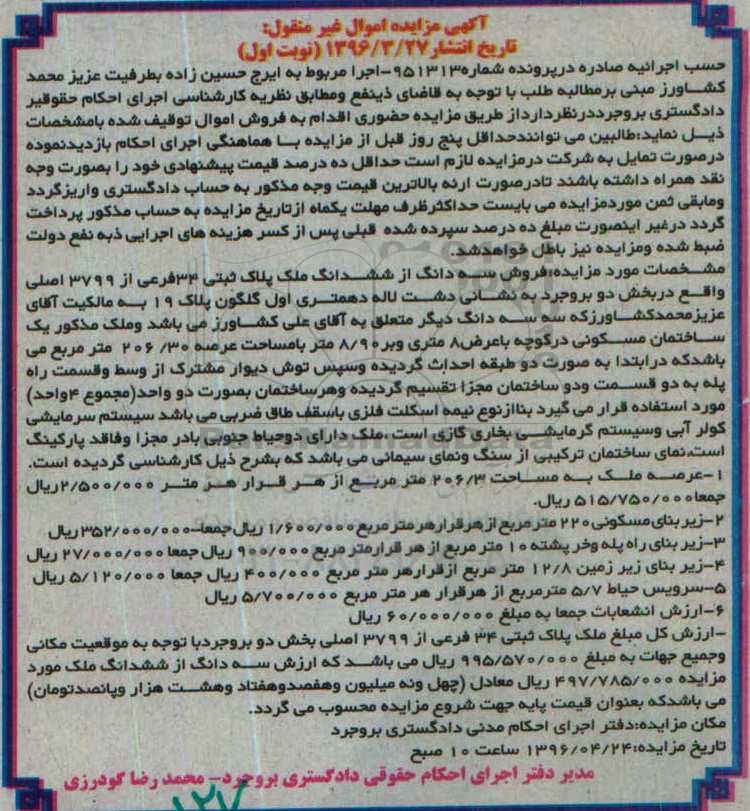 آگهی مزایده اموال غیر منقول:
تاریخ انتشار۱۳۹۶/۳/۲۷ (نوبت اول)
حسب اجرائیه صادره درپرونده شماره۹۵۱۳۱۳-اجرا مربوط به ایرج حسین زاده بطرفیت عزیز محمد
کشاورز مبنی برمطالبه طلب با توجه به تقاضای ذینفع ومطابق نظریه کارشناسی اجرای احکام حقوقیر
دادگستری بروجرددرنظردارداز طریق مزایده حضوری اقدام به فروش اموال توقیف شده بامشخصات
ذیل نماید:طالبین می توانندحداقل پنج روز قبل از مزایده با هماهنگی اجرای احکام بازدیدنموده
درصورت تمایل به شرکت درمزایده لازم است حداقل ده درصد قیمت پیشنهادی خود را بصورت وجه
نقد همراه داشته باشند تادرصورت ارئه بالاترین قیمت وجه مذکور به حساب دادگستری واریزگردد
ومابقی ثمن موردمزایده می بایست حداکثرظرف مهلت یکماه ازتاریخ مزایده به حساب مذکور پرداخت
گردد درغیر اینصورت مبلغ ده درصد سپرده شده قبلی پس از کسر هزینه های اجرایی ذبه نفع دولت
ضبط شده ومزایده نیز باطل خواهدشد.
مشخصات مورد مزایده:فروش سه دانگ از ششدانگ ملک پلاک ثبتی ۳۴فرعی از ۳۷۹۹ اصلی
واقع دربخش دو بروجرد به نشانی دشت لاله دهمتری اول گلگون پلاک ۱۹ به مالکیت آقای
عزیزمحمدکشاورزکه سه سه دانگ دیگر متعلق به آقای علی کشاورز می باشد وملک مذکور یک
ساختمان مسکونی درکوچه باعرض۸ متری وبر۸/۹۰ متر بامساحت عرصه ۲۰۶/۳۰ متر مربع می
باشدکه درابتدا به صورت دو طبقه احداث گردیده وسپس توش دیوار مشترک از وسط وقسمت راه
پله به دو قسمت ودو ساختمان مجزا تقسیم گردیده وهرساختمان بصورت دو واحد(مجموع ۴واحد)
مورد استفاده قرار می گیرد بناازنوع نیمه اسکلت فلزی باسقف طاق ضربی می باشد سیستم سرمایشی
کولر آبی وسیستم گرمایشی بخاری گازی است. ملک دارای دوحیاط جنوبی بادر مجزا وفاقد پارکینگ
است.نمای ساختمان ترکیبی از سنگ ونمای سیمانی می باشد که بشرح ذیل کارشناسی گردیده است.
۱-عرصه ملک به مساحت ۲۰۶/۳ متر مربع از هر قرار هر متر ۲/۵۰۰/۰۰۰ریال
جمعا۵۱۵/۷۵۰/۰۰۰ ریال.
۲-زیر بنای مسکونی۲۲۰ مترمربع از هرقرار هر متر مربع ۱/۶۰۰/۰۰۰ ریال جمعا-۳۵۲/۰۰۰/۰۰۰ ریال
۳-زیر بنای راه پله وخر پشته۱۰ متر مربع از هر قرارمتر مربع ۹۰۰/۰۰۰ ریال جمعا ۲۷/۰۰۰/۰۰۰ ریال
۴-زیر بنای زیر زمین ۱۲/۸ متر مربع ازقرارهر متر مربع ۴۰۰/۰۰۰ ریال جمعا ۵/۱۲۰/۰۰۰ ریال
۵-سرویس حیاط ۵/۷ مترمربع از هرقرار هر متر مربع ۵/۷۰۰/۰۰۰ ریال
۶-ارزش انشعابات جمعا به مبلغ ۶۰/۰۰۰/۰۰۰ ریال
-ارزش کل مبلغ ملک پلاک ثبتی ۳۴ فرعی از ۳۷۹۹ اصلی بخش دو بروجردبا توجه به موقعیت مکانی
وجمیع جهات به مبلغ ۹۹۵/۵۷۰/۰۰۰ ریال می باشد که ارزش سه دانگ از ششدانگ ملک مورد
مزایده ۴۹۷/۷۸۵/۰۰۰ ریال معادل (چهل ونه میلیون وهفصدوهفتاد وهشت هزار وپانصدتومان)
می باشدکه بعنوان قیمت پایه جهت شروع مزایده محسوب می گردد.
مکان مزایده:دفتر اجرای احکام مدنی دادگستری بروجرد
تاریخ مزایده:۱۳۹۶/۰۴/۲۴ ساعت ۱۰ صبح
مدیر دفتر اجرای احکام حقوقی دادگستری بروجرد- محمد رضا گودرزی
۱۲۷